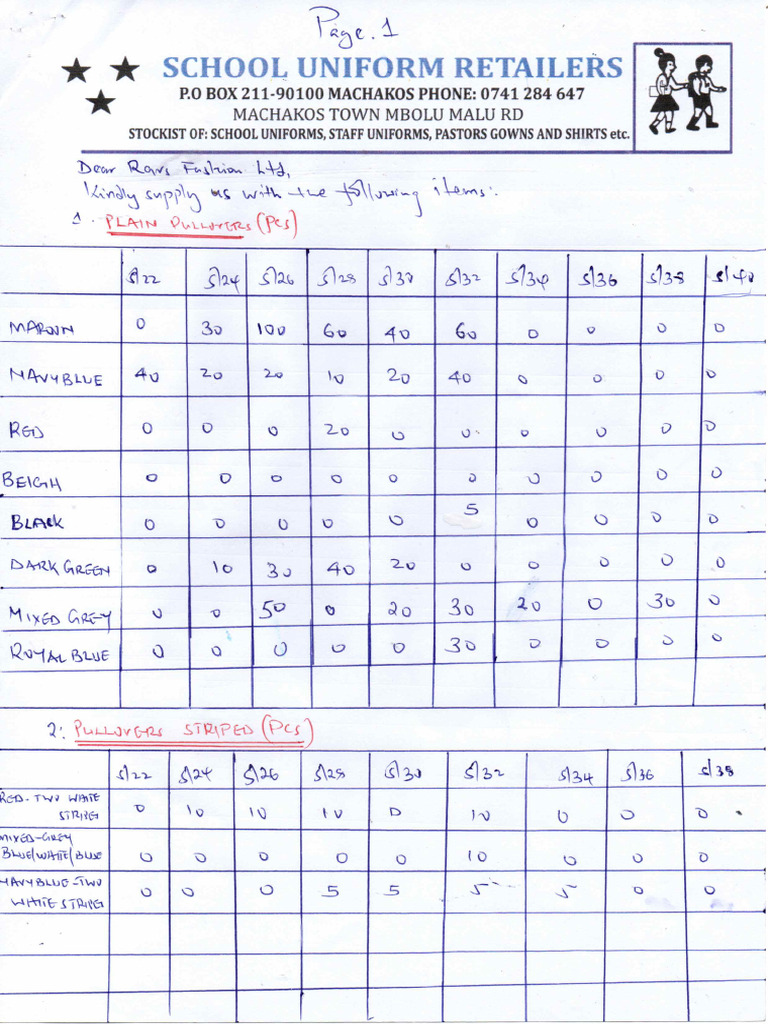 Page.1
SCHOOL UNIFORM RETAILERS
P.O BOX 211-90100 MACHAKOS PHONE: 0741 284 647
MACHAKOS TOWN MBOLU MALU RD
STOCKIST OF: SCHOOL UNIFORMS, STAFF UNIFORMS, PASTORS GOWNS AND SHIRTS etc.
Dear Ravs Fashion Ltd,
Kindly supply us with the following items:
1. PLAIN PULLOVERS (PCS)
S/22 S/24 S/26 S/28 S/30 S/32 S/34 S/36 S/38 S/40
MAROON 0 30 100 60 40 60 0 0 0 0
NAVYBLUE 40 20 20 10 20 40 0 0 0 0
RED 0 0 0 20 0 0 0 0 0 0
BEIGH 0 0 0 0 0 0 0 0 0 0
BLACK 0 0 0 0 0 5 0 0 0 0
DARK GREEN 0 10 30 40 20 0 0 0 0 0
MIXED GREY 0 0 50 0 20 30 20 0 30 0
ROYAL BLUE 0 0 0 0 0 30 0 0 0 0
2: PULLOVERS STRIPED (PCS)
S/22 S/24 S/26 S/28 S/30 S/32 S/34 S/36 S/38
RED-TWO WHITE
STRIPES 0 10 10 10 0 10 0 0 0
MIXED-GREY
BLUE/WHITE/BLUE 0 0 0 0 0 10 0 0 0
NAVYBLUE-TWO
WHITE STRIPES 0 0 0 5 5 5 5 0 0